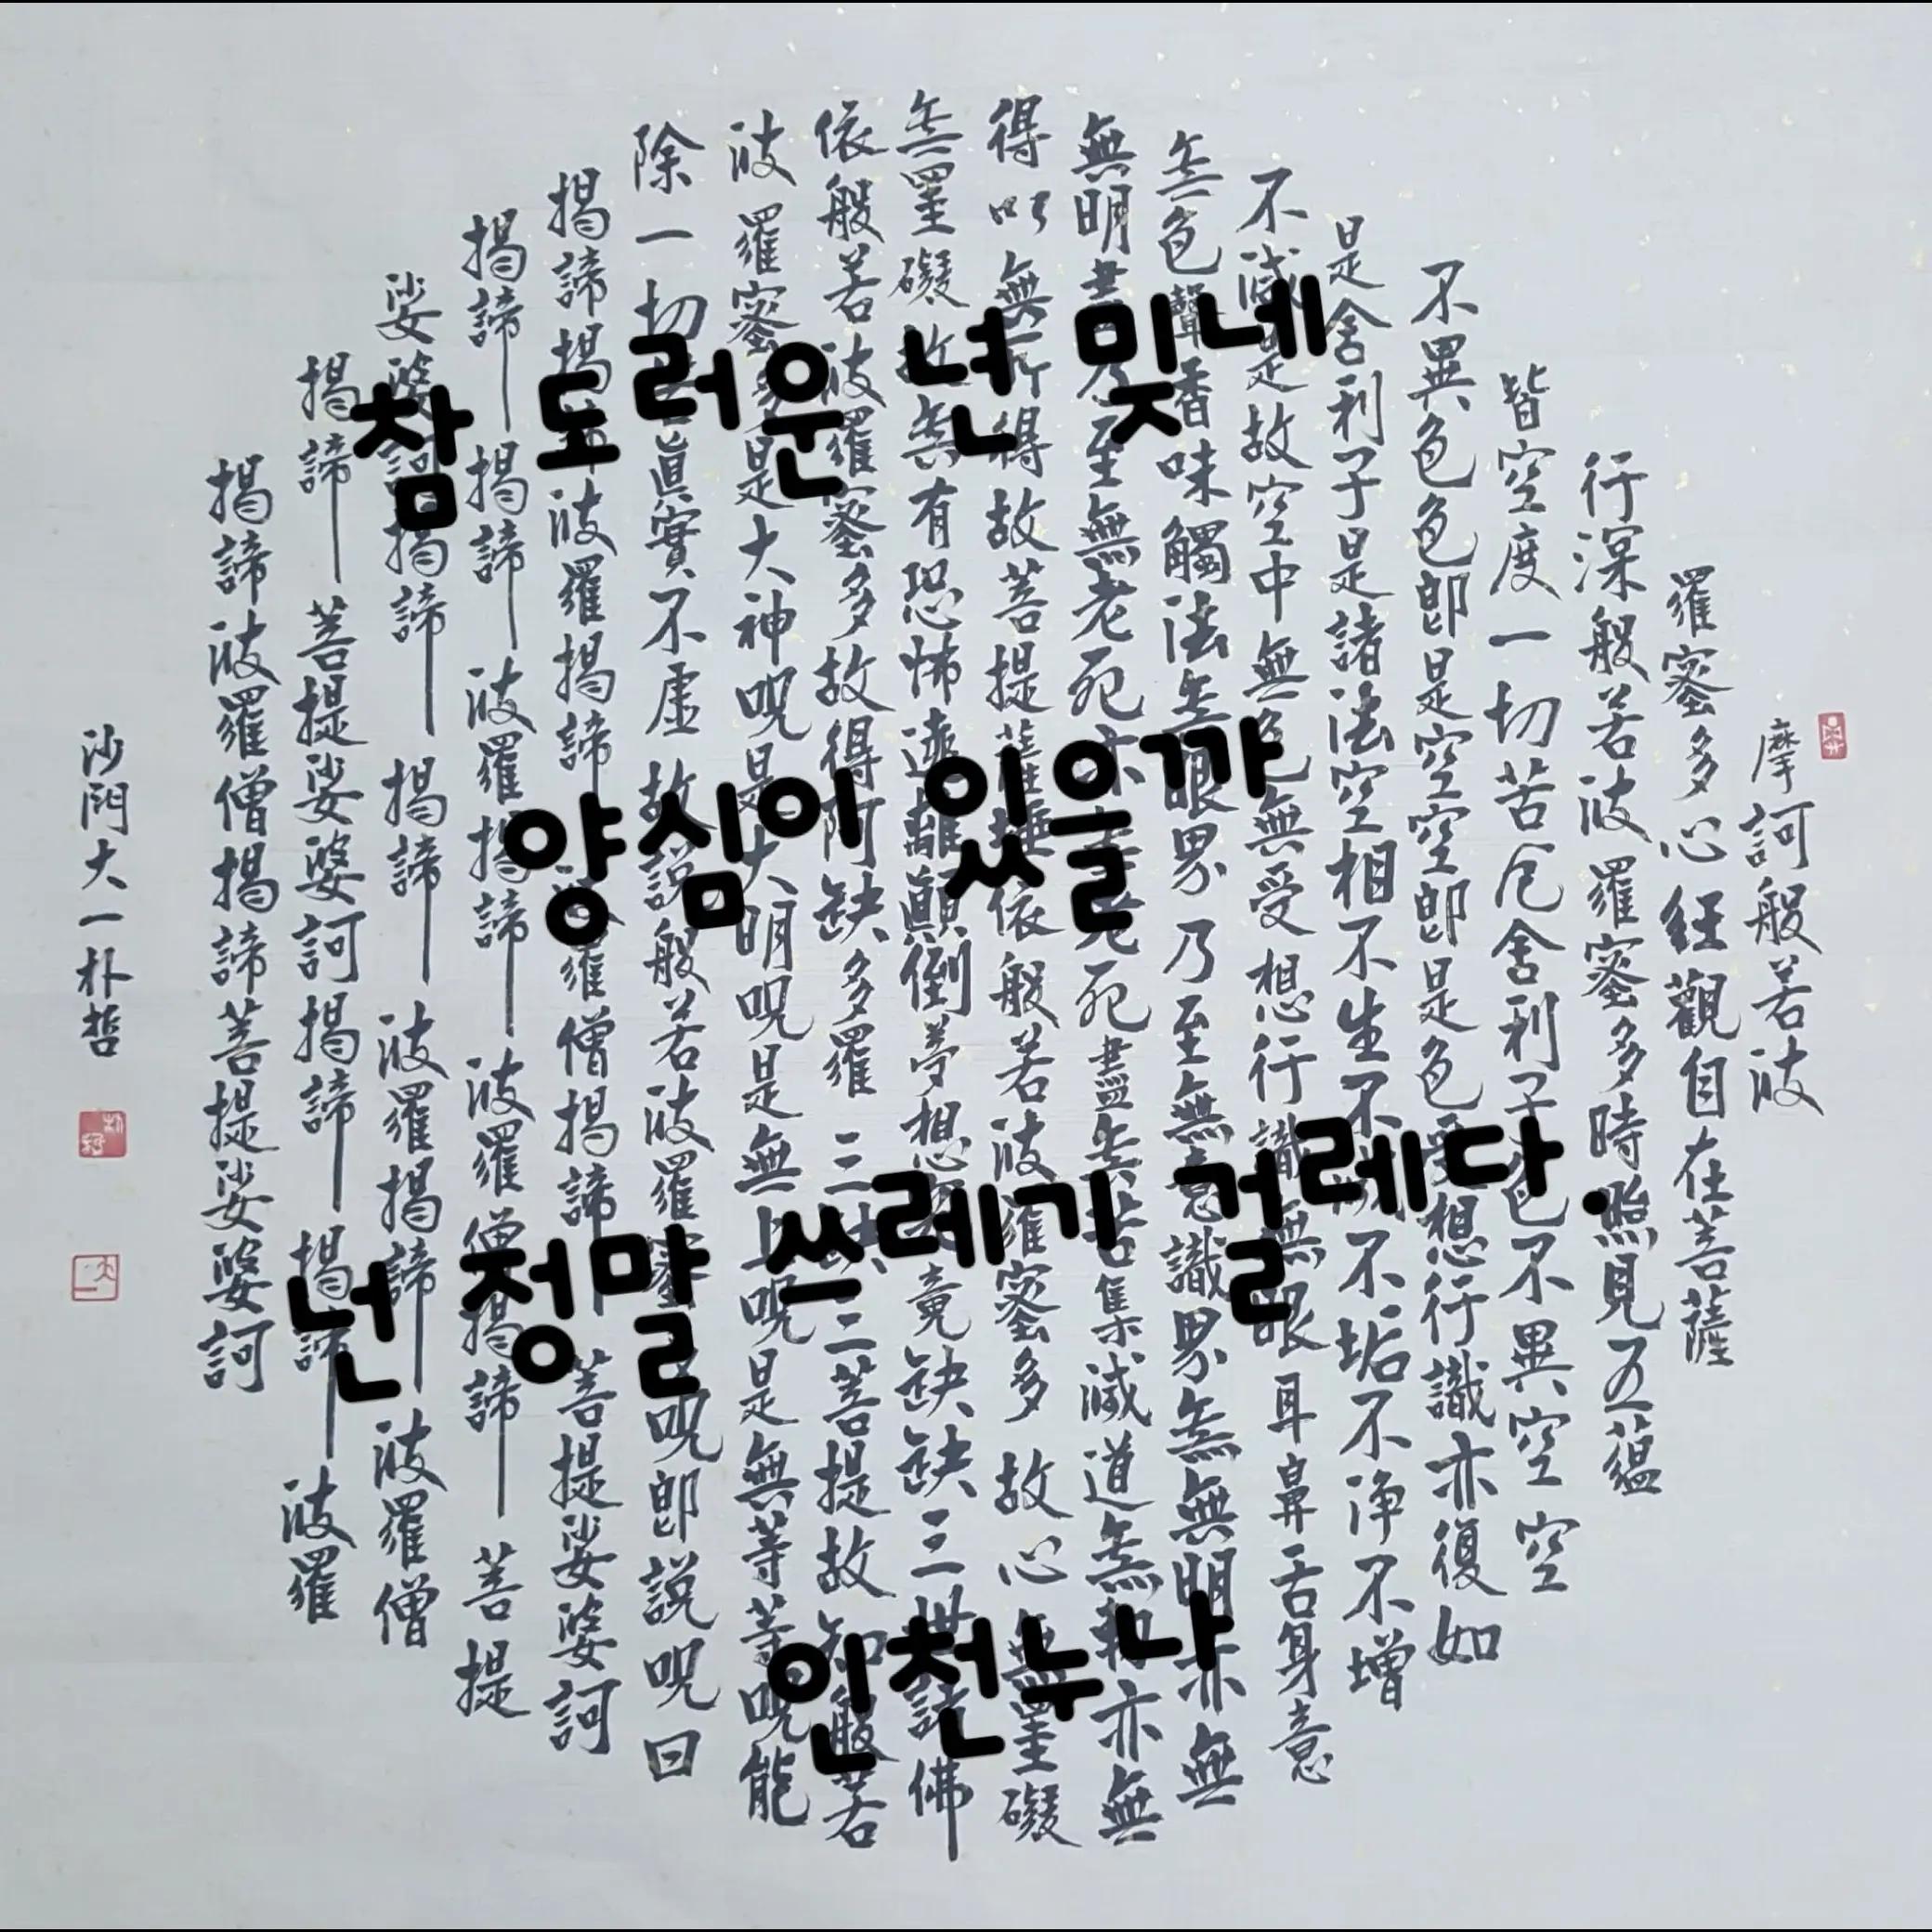 참 도러운 년 밎네
양심이 있을까
넌 정말 쓰레기 걸레다.
인천누나
摩訶般若波
羅蜜多心経觀自在菩薩
行深般若波羅蜜多時照見五蘊
皆空度一切苦厄舍利子色不異空空
不異色色卽是空空卽是色受想行識亦復如
是舍利子是諸法空相不生不滅不垢不淨不增
不減是故空中無色無受想行識無眼耳鼻舌身意
無色聲香味觸法無眼界乃至無意識界無無明亦無
無明盡乃至無老死亦無老死盡無苦集滅道無智亦無
得以無所得故菩提薩埵依般若波羅蜜多故心無罣礙
無罣礙故無有恐怖遠離顚倒夢想究竟缺缺三世諸佛
依般若波羅蜜多故得阿缺多羅三缺三菩提故知般若
波羅蜜多是大神呪是大明呪是無上呪是無等等呪能
除一切苦眞實不虛故說般若波羅蜜多呪卽說呪曰
揭諦揭諦波羅揭諦波羅僧揭諦菩提娑婆訶
揭諦揭諦波羅揭諦波羅僧揭諦菩提
娑婆訶揭諦揭諦波羅揭諦波羅僧
揭諦菩提娑婆訶揭諦揭諦波羅
揭諦波羅僧揭諦菩提娑婆訶
沙門大一朴哲